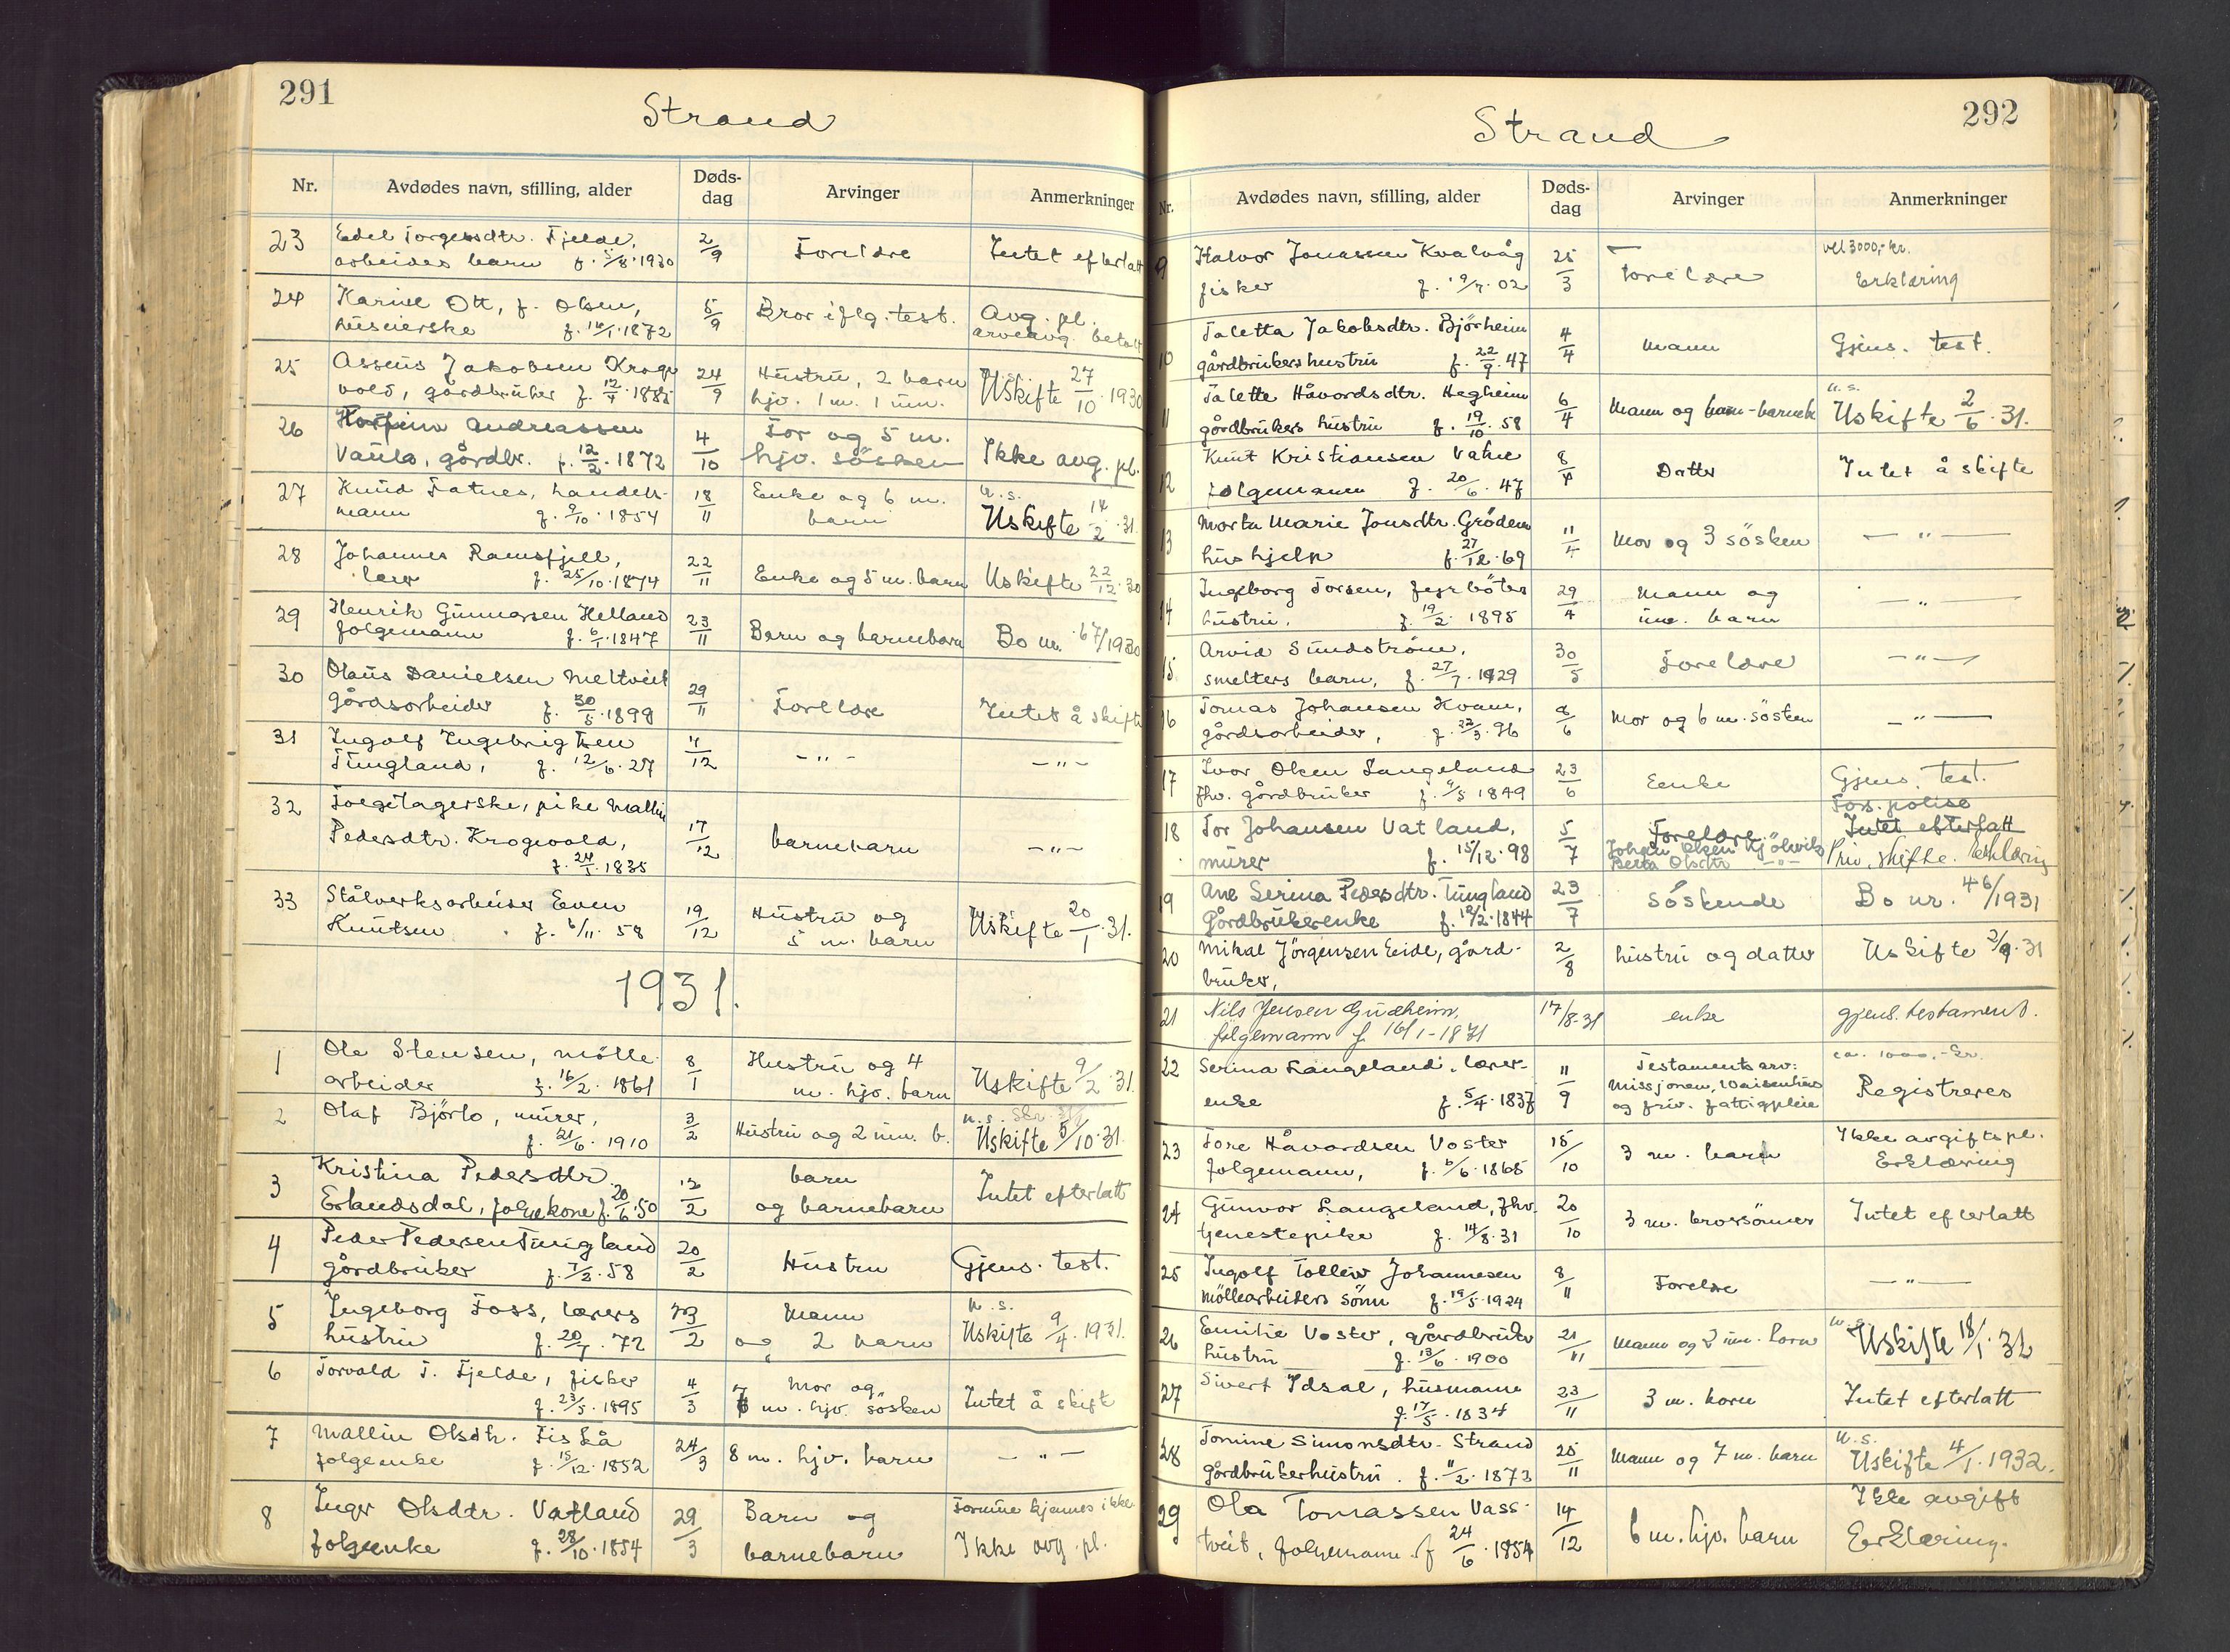 291
Strand
Nr. Avdødes navn, stilling, alder Døds-dag Arvinger Anmerkninger
23 Edel Torgersdtr. Fjelde, 2/9 Foreldre Intet efterlatt
arbeiders barn f. 5/8.1930
24 Karine Ott, f. Olsen, 5/9 Bror iflg. test. Avg. pl.
huseierske f. 16/1.1872 arveavg. betalt
25 Assens Jakobsen Krog- 24/9 Hustru, 2 barn Uskifte 27/10 1930
vold, gårdbruker f. 12/4.1885 hjv. 1 m. 1 um.
26 Andreassen 4/10 Far og 5 m. Ikke avg. pl.
Vaula, gårdbr. f. 12/2.1872 hjv. søsken
27 Knud Tatnes, handels- 18/11 Enke og 6 m. u.s.
mann f. 9/10.1854 barn Uskifte 14/2.31.
28 Johannes Ramsfjell, 22/11 Enke og 5 m. barn Uskifte 22/12.30
lærer f. 25/10.1874
29 Henrik Gunnarsen Helland 23/11 Barn og barnebarn Bo nr. 67/1930
folgemann f. 6/1.1847
30 Olaus Danielsen Meltveit 29/11 Foreldre Intet å skifte
gårdsarbeider f. 30/5.1899
31 Ingolf Ingebrigtsen 4/12 -"- -"-
Tungland, f. 12/6.27
32 Forsetlagerske, pike Mallin
Pedersdtr. Krogevold, 17/12 barnebarn -"-
f. 24/1.1835
33 Stålverksarbeider Even 19/12 Hustru og Uskifte 20/1.31.
Knutsen f. 6/11.58 5 m. barn
1931.
1 Ole Stensen, mølle- 8/1 Hustru og 4 Uskifte 9/2.31.
arbeider f. 16/2.1861 m. hjv. barn
2 Olaf Björlo, murer, 3/2 Hustru og 2 um. b. u.s.
f. 21/6.1910 Uskifte 5/10.31.
3 Kristina Pedersdtr. 12/2 barn Intet efterlatt
Erlandsdal, folgekone f. 20/6.50 og barnebarn
4 Peder Pedersen Tungland 20/2 Hustru Gjens. test.
gårdbruker f. 7/2.58
5 Ingeborg Foss, lærers 23/2 Mann u.s.
hustru f. 20/7.72 og 2 barn Uskifte 9/4.1931.
6 Torvald T. Fjelde, fisker 4/3 Mor og Intet å skift
f. 23/5.1895 7 m. hjv. søsken
7 Mallin Olsdtr. Fiskå 24/3 8 m. hjv. barn -"-
folgeenke f. 15/12.1852
8 Inger Olsdtr. Vatland 29/3 Barn og Formue kjennes ikke
folgeenke f. 28/10.1854 barnebarn Ikke avg. pl.
292
Strand
Nr. Avdødes navn, stilling, alder Døds-dag Arvinger Anmerkninger
9 Halvor Jonassen Kvalvåg 25/3 Foreldre vel 3000,- kr.
fisker f. 9/7.02 Erklæring
10 Taletta Jakobsdtr. Björheim 4/4 Mann Gjens. test.
gårdbrukershustru f. 22/9.47
11 Talette Håvordsdtr. Hegheim 6/4 Mann og barnebarn u.s.
gårdbrukers hustru f. 19/10.58 Uskifte 2/6.31.
12 Knut Kristiansen Vatne 8/4 Datter Intet å skifte
folgemann f. 20/6.47
13 Marta Marie Jonsdtr. Gröden 11/4 Mor og 3 søsken -"-
hushjelp f. 27/12.69
14 Ingeborg Torsen, fyrbøters 29/4 Mann og -"-
hustru. f. 19/2.1895 um. barn
15 Arvid Sundström, 30/5 Foreldre -"-
smelters barn, f. 27/7.1929
16 Tomas Johansen Kvam, 8/6 Mor og 6 m. søsken -"-
gårdsarbeider, f. 22/3.96
17 Ivar Olsen Langeland 23/6 Enke Gjens. test.
fhv. gårdbruker f. 4/5 1849
18 Tor Johansen Vatland, 5/7 Foreldre Fors. polise
murer f. 15/12.98 Johan Olsen Kjölevik Intet efterlatt
Berta Olsdtr -"- Priv. skifte. Erklæring
19 Ane Serina Pedersdtr. Tungland 23/7 Søskende Bo nr. 46/1931
Gårdbrukerenke f. 12/2.1844
20 Mikal Jörgensen Eide, gård- 2/8 hustru og datter Uskifte 2/9.31
bruker,
21 Nils Jensen Gudheim, 17/8-31 enke gjens. testament.
følgemann f. 16/1-1871
22 Serina Langeland, lærer- 11/9 Testamentsarv: ca. 1000,- kr.
enke f. 5/4.1837 Missjonen, Waisenhus Registreres
og friv. fattigpleie
23 Tore Håvardsen Voster 15/10 3 m. barn Ikke avgiftspl.
folgemann, f. 6/6.1865 Erklæring
24 Gunvor Langeland, fhv. 20/10 3 m. brorsønner Intet efterlatt
tjenestepike f. 14/8.31
25 Ingolf Tollev Johannesen 8/11 Foreldre -"-
møllearbeiders sønn f. 19/5.1924
26 Emilie Voster, gårdbruker 21/11 Mann og 2 um. barn u.s.
hustru f. 13/6.1900 Uskifte 18/1.32
27 Sivert Idsal, husmann 23/11 3 m. barn Intet efterlatt
f. 17/5.1834
28 Tomine Simonsdtr. Strand 25/11 Mann og 7 m. barn u.s.
gårdbrukerhustru. f. 11/2.1873 Uskifte 4/1.1932.
29 Ola Tomassen Vass- 14/12 6 m. hjv. barn Ikke avgift
tveit, folgemann f. 24/6.1854 Erklæring.